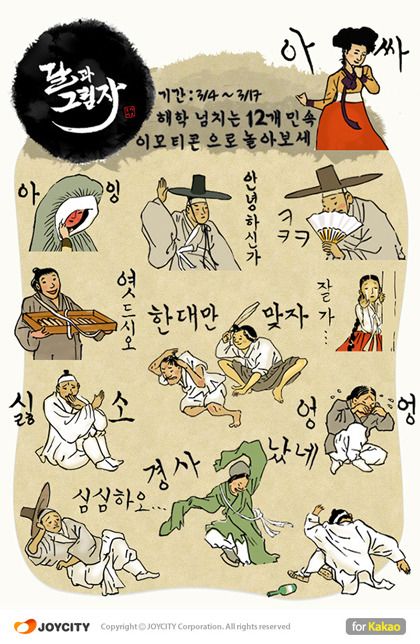 달과
그림자
아싸
기간 : 3/4 ~ 3/17
해학 넘치는 12개 민속
이모티콘 으로 놀아보세
아잉
안녕하신가
ㅋㅋㅋ
엿드시오
한대만 맞자
잘가...
싫소
엉엉
경사났네
심심하오...
JOYCITY
Copyright ⓒ JOYCITY Corporation. All rights reserved
for Kakao